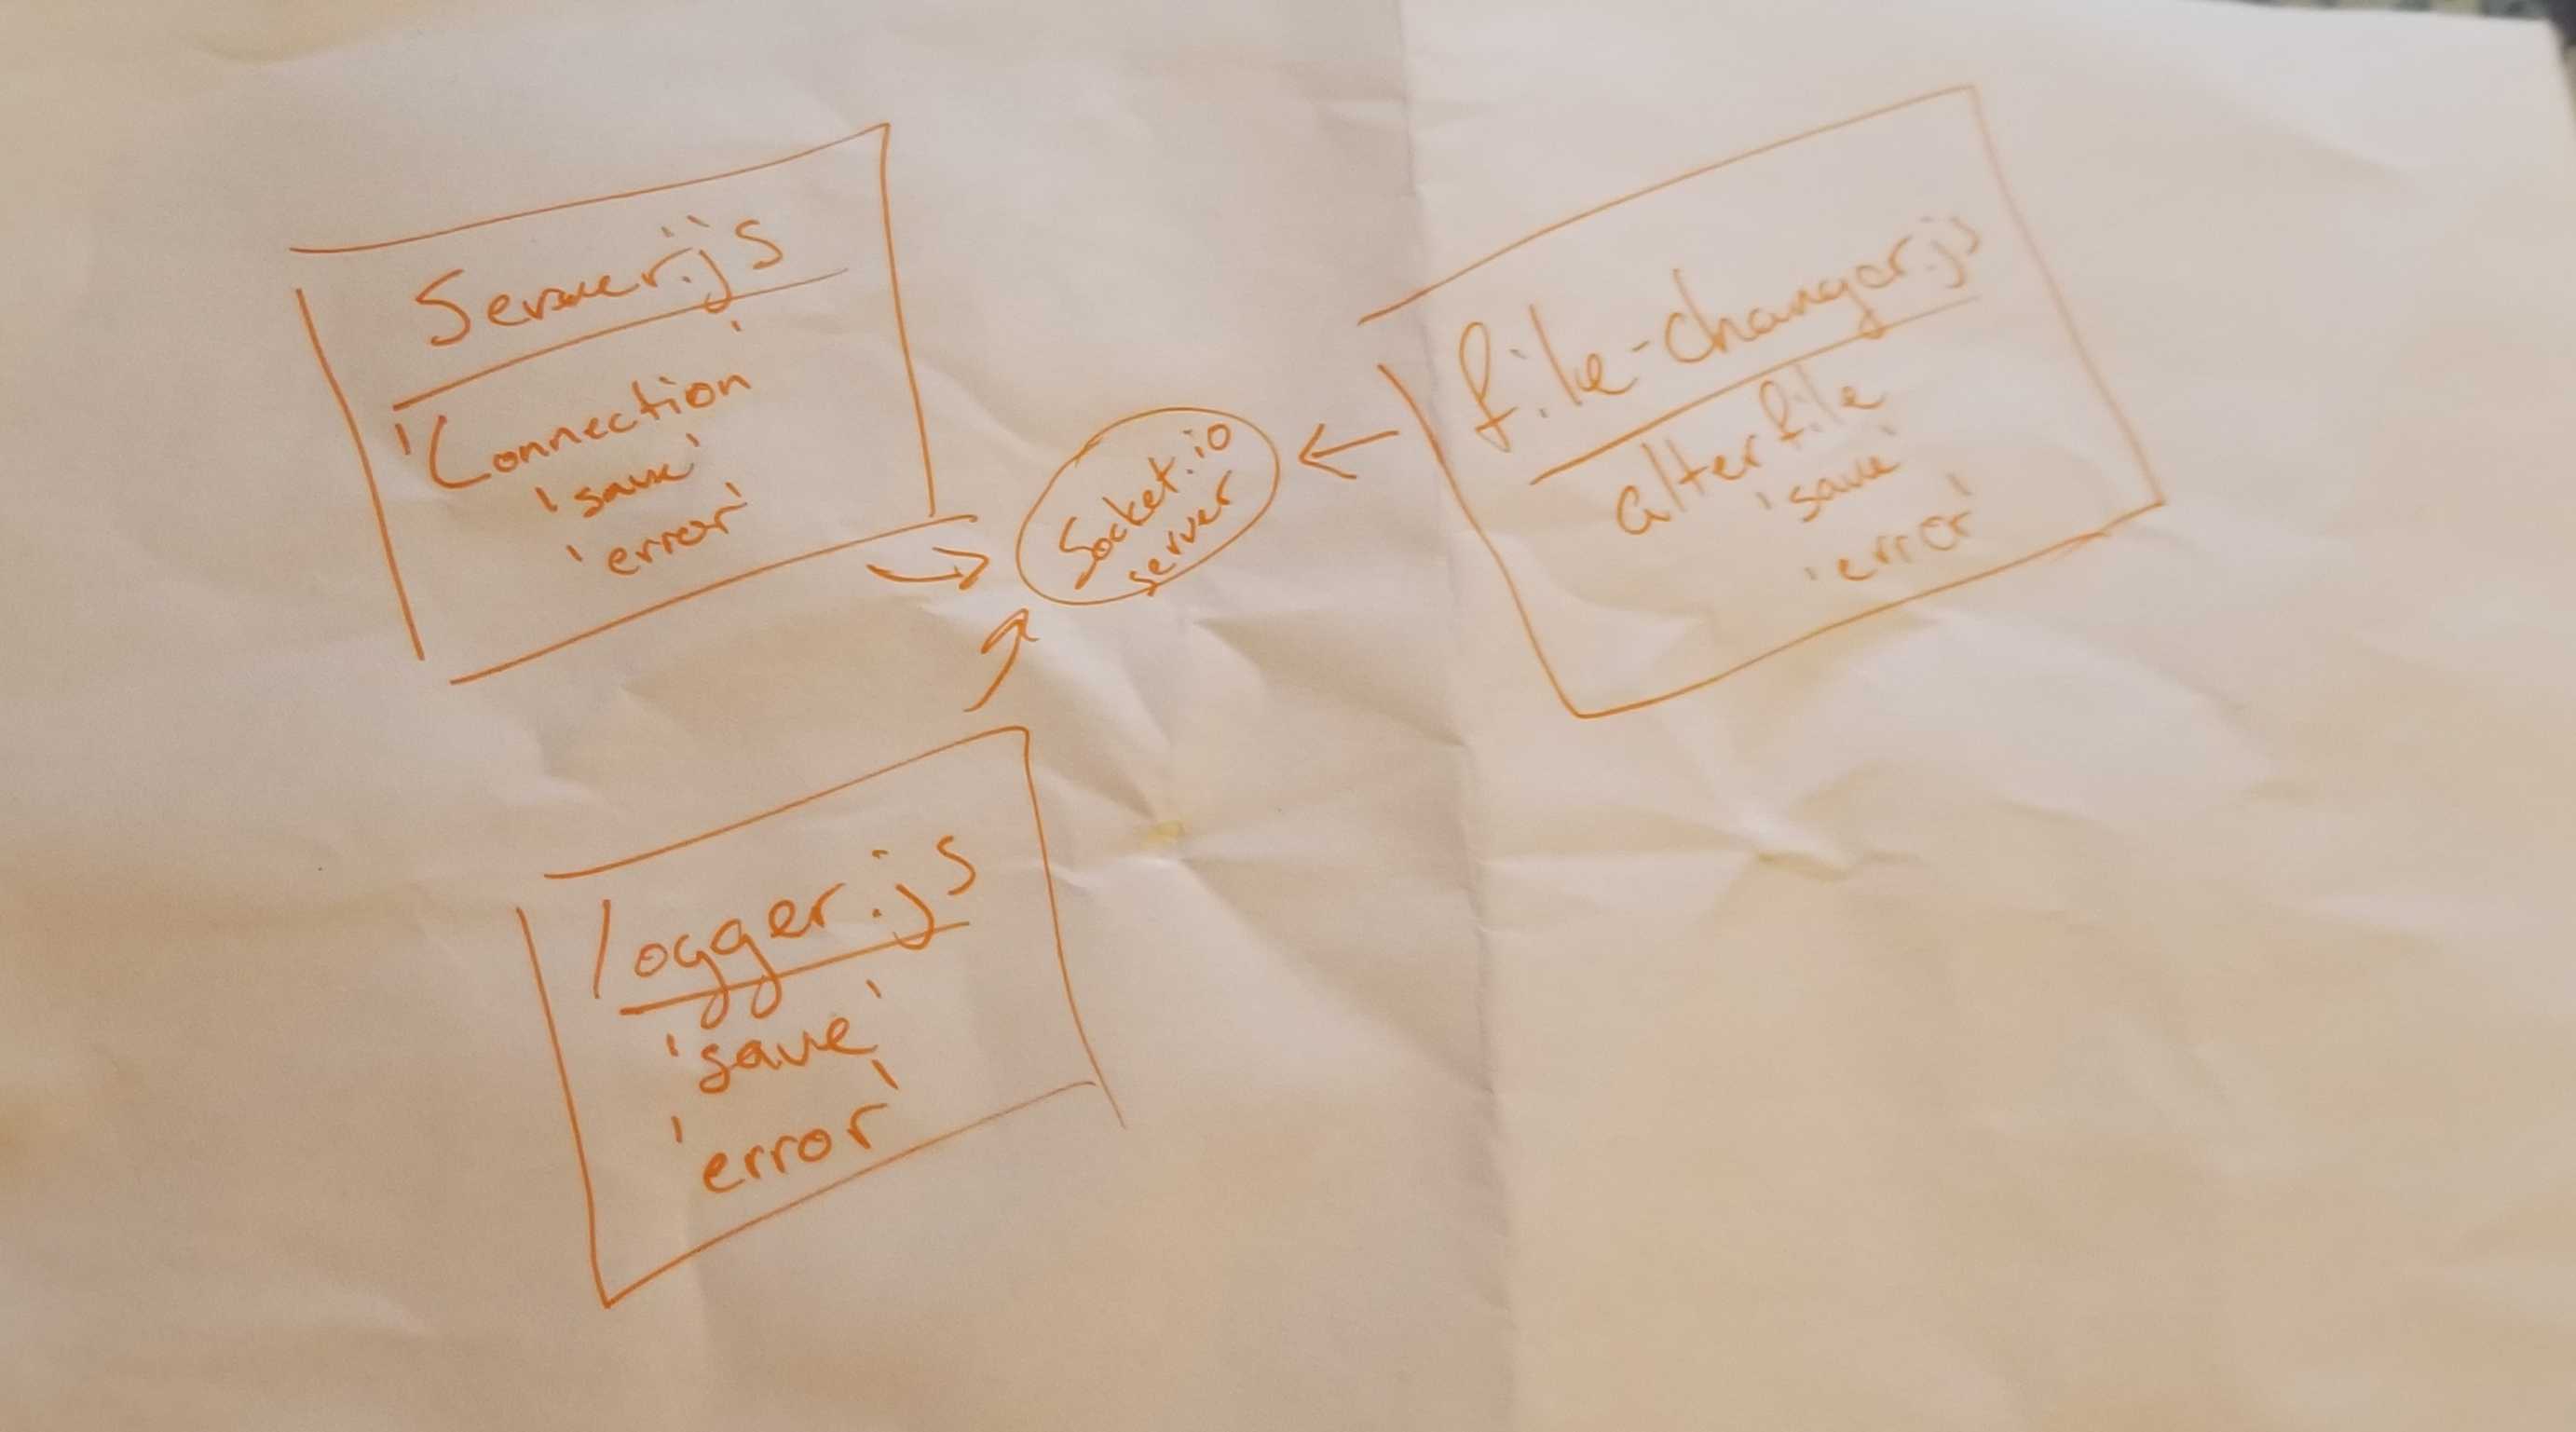 Server.js
'Connection'
'save'
'error'
Socket.io
server
file-changer.js
alterfile
'save'
'error'
logger.js
'save'
'error'